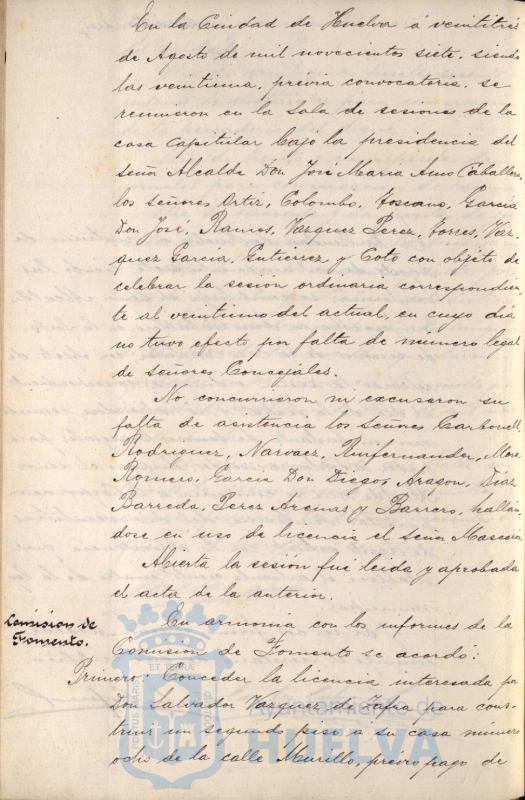 En la Ciudad de Huelva á veintitrés
de Agosto de mil novecientos siete, siendo
las veintiuna, previa convocatoria, se
reunieron en la Sala de sesiones de la
casa Capitular bajo la presidencia del
señor Alcalde Don José Maria Amo Caballero,
los señores Ortiz, Colombo, Toscano, Garcia
Don José, Ramos, Vazquez Perez, Torres, Vaz-
quez Garcia, Gutierrez y Coto con objeto de
celebrar la sesión ordinaria correspondien-
te al veintiuno del actual, en cuyo día
no tuvo efecto por falta de número legal
de señores Concejales.
No concurrieron ni excusaron su
falta de asistencia los señores Carbonell,
Rodriguez, Narvaez, Ruifernandez, More
Romero, Garcia Don Diego, Aragon, Díaz
Barreda, Perez Arenas y Barrero, hallán-
dose en uso de licencia el señor
Abierta la sesión fué leida y aprobada
el acta de la anterior.
Comision de
Fomento.
En armonia con los informes de la
Comisión de Fomento se acordó:
Primero: Conceder la licencia interesada por
Don Salvador Vazquez de Zafra para cons-
truir un segundo piso a su casa número
ocho de la calle Murillo, previo pago de
PORTUS MARIS ET TERRAE CUSTODIO
Ayuntamiento de
HUELVA